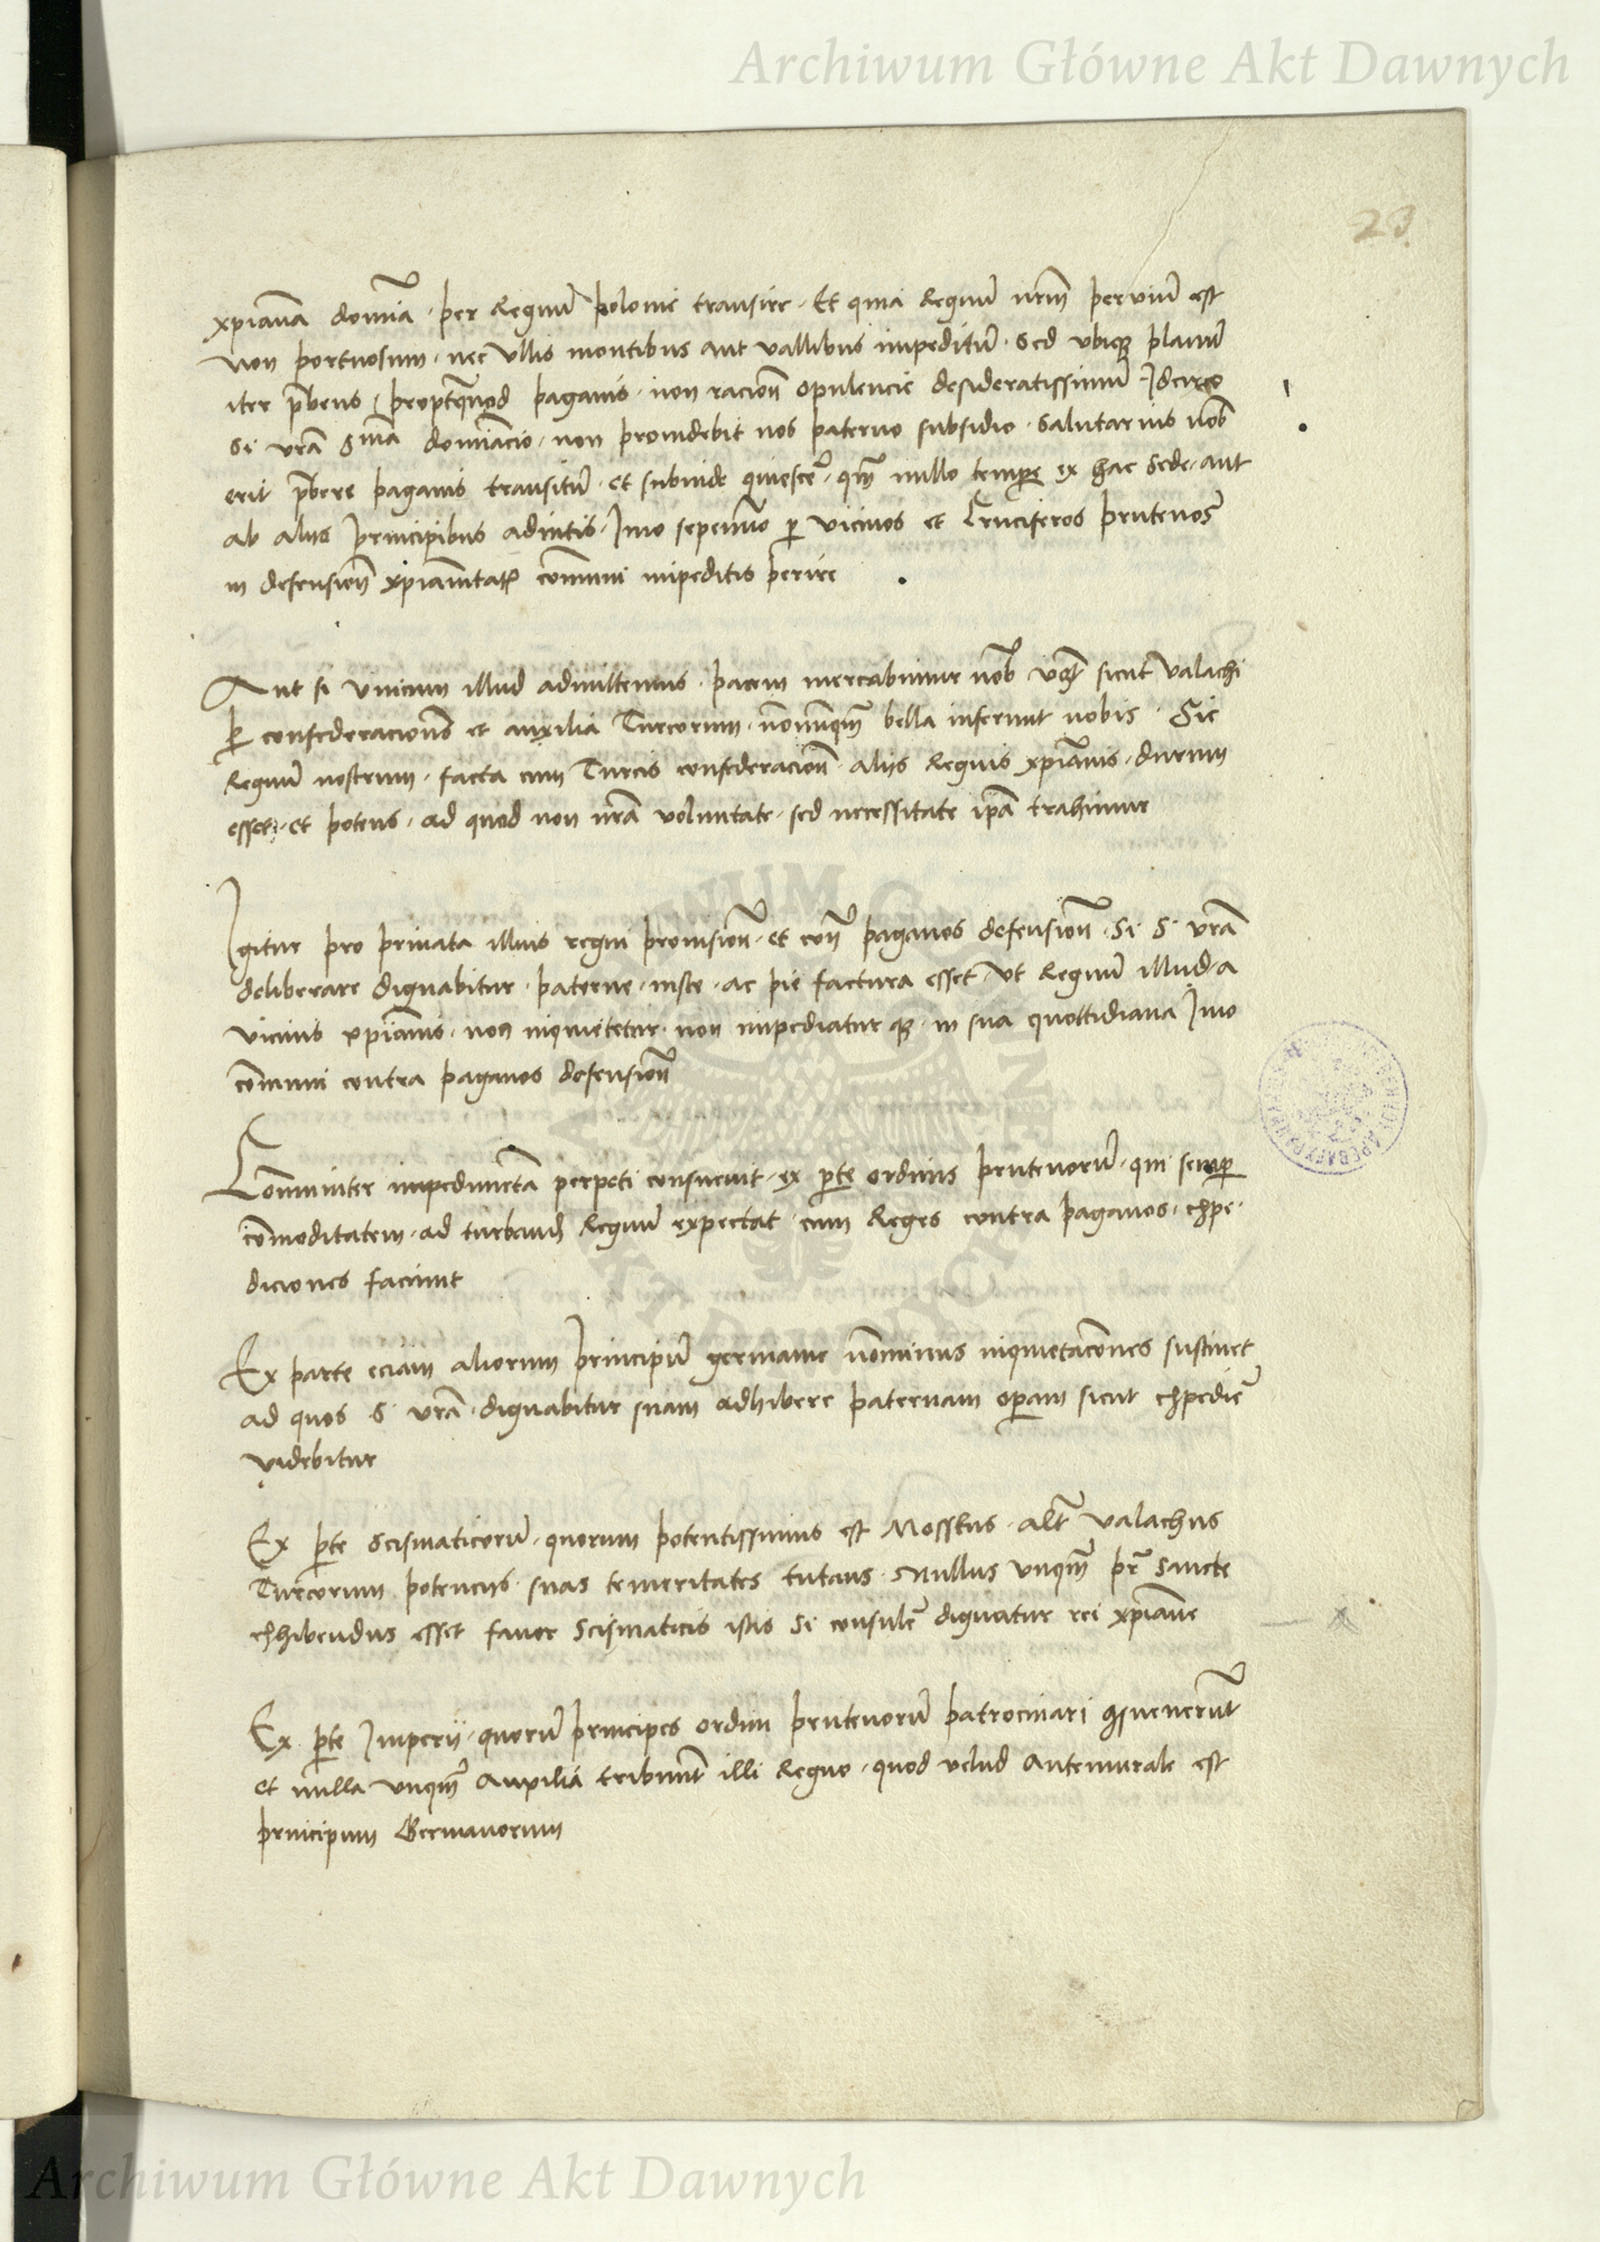 Archiwum Główne Akt Dawnych
23
xpianã dominia · per Regnũ polonie transire · Et quia Regnũ nrm̃ perviũ est
non portuosum · nec Ullis montibus aut vallibus impeditũ · sed ubiqȝ planũ
iter p̃bens propt̃quod paganis · non racion̄ opulencie desideratissimũ Idcirco
Si vrã Sma dominacio · non providebit nos paterno subsidio · Salutarius nob̃
erit p̃bere paganis transitũ · et subinde quiescẽ · qm̃ nullo tempe ex hac Sede · aut
ab aliis principibus adiutis · Imo sepenũo p vicinos et Cruciferos prutenos
in defension̄ xpianitatis com̃uni impeditis perire
Aut si unicum illud admittemus · pacem mercabimur nob̃ sicut Valachi
p confederacion̄s et auxilia Turcorum · nonunqm̃ bella inferunt nobis · Sic
Regnũ nostrum · facta cum Turcis confederacion̄ · aliis Regnis xpianis · durum
esset · et potens · ad quod non nrã voluntate · sed necessitate ipã trahimur
Igitur pro privata illius regni provision̄ · et con̄ paganos defension̄ · Si S · vrã
deliberare dignabitur · paterne · iuste · ac pie factura esset · Ut Regnũ illud · a
vicinis xpianis · non inquietetur · non impediatur qȝ · in sua quottidiana Imo
com̃uni contra paganos defension̄
Com̃uniter impedimẽta perpeti consuevit · ex pte ordinis prutenorũ · qui semp
com̃oditatem · ad turband̃ Regnũ expectat · cum Reges contra paganos · expe·
diciones faciunt
Ex parte eciam aliorum principũ germanie nõminus inquietacõnes sustinet
ad quos S · vrã · dignabitur suam adhibere paternam operam sicut expediẽ
videbitur
Ex pte Scismaticorũ · quorum potentissimus est Mosskus · alt̃ Valachus
Turcorum potenciis · suas temeritates tutans · Nullus unqm̃ pr̃ sancte
exhibendus esset favor Scismaticis istis Si consulẽ dignatur rei xpiane
Ex pte Imperii · quorũ principes ordini prutenorũ patrocinari consueverũt
et nulla unqm̃ Auxilia tribuũt illi Regno · quod velud Antemurale est
principum Germanorum
Archiwum Główne Akt Dawnych